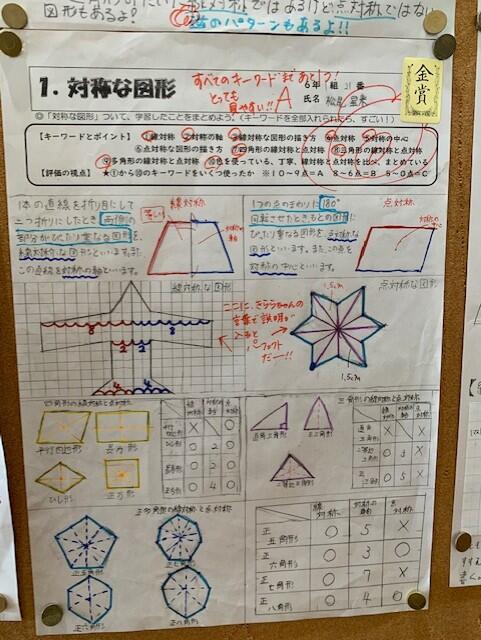 図形もあるよ?
対称ではあるけど点対称ではない
逆のパターンもあるよ!!
1. 対称な図形
すべてのキーワード
とっても
見やすい!! A
6年 組 21番
氏名
金賞
◎「対称な図形」ついて、学習したことをまとめよう。(キーワードを全部入れられたら、すごい!)
【キーワードとポイント】 ①線対称 ②対称の軸 ③線対称な図形の描き方 ④点対称 ⑤対称の中心
⑥点対称な図形の描き方 ⑦四角形の線対称と点対称 ⑧三角形の線対称と点対称
⑨多角形の線対称と点対称 ⑩色を使っている、丁寧、線対称と点対称を比べ、まとめている
【評価の視点】 ★①から⑩のキーワードをいくつ使ったか ※10~9点=A 8~6点=B 5~0点=C
1本の直線を折り目にして
二つ折りにしたとき両側の
部分がぴたり重なる図形を、
線対称な図形といいます。また、
この直線を対称の軸といいます。
線対称
対称の軸
1つの点のまわりに180°
回転させたときもとの図形に
ぴたり重なる図形を、点対称な
図形といいます。また、この点を
対称の中心といいます。
点対称
線対称な図形
8 8
2 2
4 4
ここに、きららちゃんの
言葉で説明が
入ると
パーフェクト
だー!!
点対称な図形
1.5cm
1.5cm
四角形の線対称と点対称
平行四辺形 長方形
ひし形 正方形
線対称 対称の軸 点対称
平行四辺形 × 0 ○
ひし形 ○ 2 ○
長方形 ○ 2 ○
正方形 ○ 4 ○
三角形の線対称と点対称
直角三角形 正三角形
二等辺三角形
線対称 対称の軸 点対称
直角三角形 ×
二等辺三角形 ○
正三角形 ○
正多角形の線対称と点対称
正五角形 正七角形
正六角形 正八角形
線対称 対称の軸 点対称
正五角形 ○ 5 ×
正六角形 ○ 3 ○
正七角形 ○ 7 ×
正八角形 ○ 4 ○